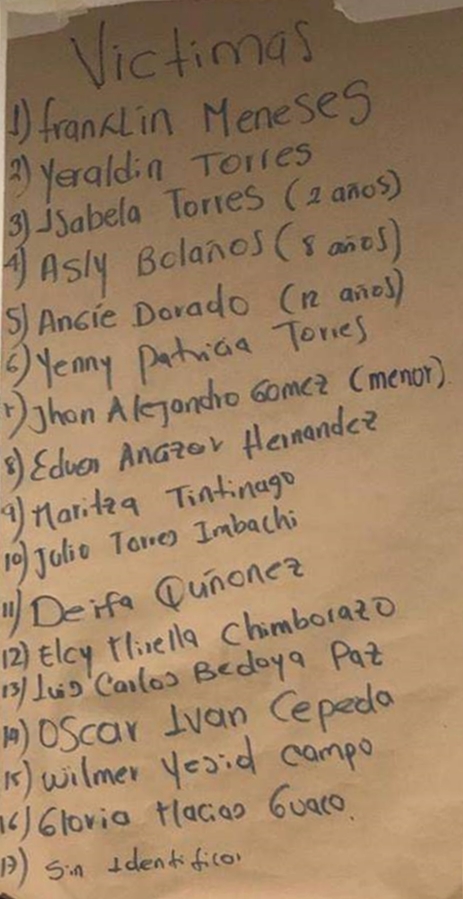 Victimas
1) franKLin Meneses
2) Yeraldin Torres
3) Isabela Torres (2 años)
4) Asly Bolaños (8 años)
5) Angie Dorado (12 años)
6) Yenny Patricia Torres
7) Jhon Alejandro Gomez (menor).
8) Eduar Hernandez
9) Maritza Tintinago
10) Julio Torres Imbachi
11) Deifa Quiñonez
12) Elcy Mirella Chimborazo
13) Luis Carlos Bedoya Paz
14) Oscar Ivan Cepeda
15) Wilmer Yesid Campo
16) Gloria Macias Guaco.
17) Sin Identificar